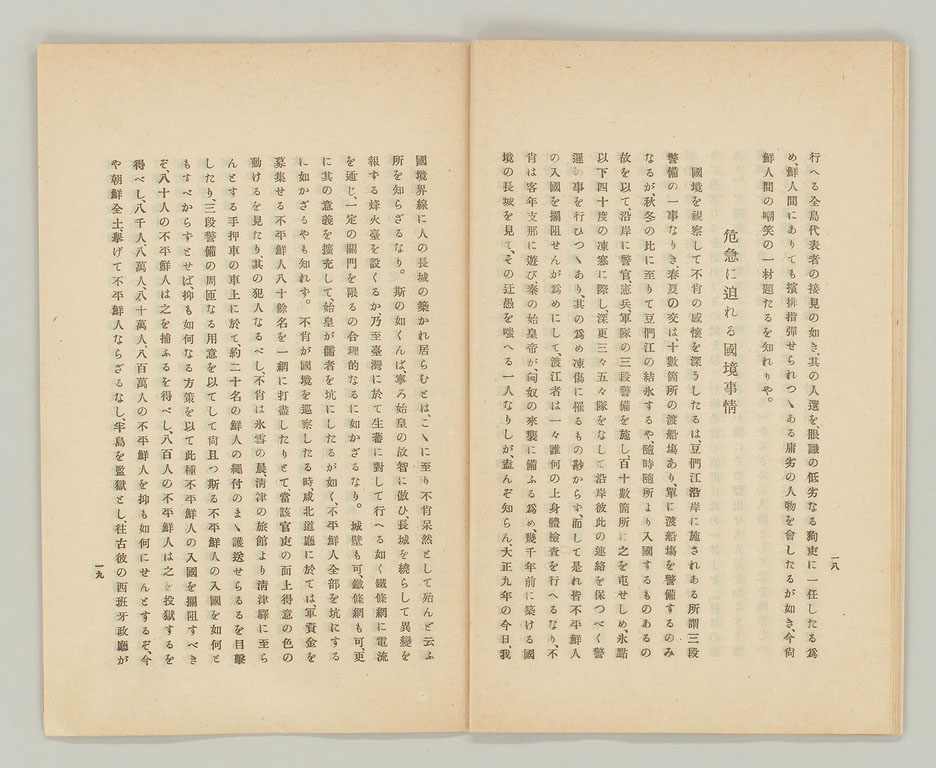 行へる全島代表者の接見の如き、其の人選を眼識の低劣なる狗吏に一任したる爲
め、鮮人間にありても擯排指彈せられつゝある庸劣の人物を會したるが如き、今尙
鮮人間の嘲笑の一材題たるを知れりや。
危急に迫れる國境事情
國境を視察して不肖の感懷を深うしたるは、豆們江沿岸に施されある所謂三段
警備の一事なりき春夏の交は十數箇所の渡船塲あり、單に渡船塲を警備するのみ
なるが、秋冬の比に至りて豆們江の結氷するや、隨時隨所より入國するものあるの
故を以て沿岸に警官憲兵、軍隊の三段警備を施し、百十數箇所に之を屯せしめ氷點
以下四十度の凍寒に際し、深更三々五々隊をなして沿岸彼此の連絡を保つべく警
邏の事を行ひつゝあり、其の爲め凍傷に罹るもの尠からず、而して是れ皆不平鮮人
の入國を擱阻せんが爲めにして、渡江者は一々誰何の上身體檢査を行へるなり、不
肖は客年支那に遊び秦の始皇帝が、匈奴の來襲に備ふる爲め、幾千年前に築ける國
境の長城を見て、その迂愚を嗤へる一人なりしが、盍んぞ知らん、大正九年の今日、我
一八
國境界線に人の長城の築かれ居らむとは、こゝに至り不肖呆然として殆んど云ふ
所を知らざるなり。斯の如くんば、寧ろ始皇の故智に倣ひ、長城を繞らして異變を
報する烽火臺を設くるか、乃至臺灣に於て生蕃に對して行へる如く鐵條網に電流
を通じ、一定の關門を限るの合理的なるに如かざるなり。城壁も可、鐵條網も可、更
に其の意義を擴充して、始皇が儒者を坑にしたるが如く、不平鮮人全部を坑にする
に如かざるやも知れず。不肖が國境を巡察したる時、咸北道廳に於ては、軍資金を
募集せる不平鮮人八十餘名を一網に打盡したりとて、當該官吏の面上得意の色の
動けるを見たり其の犯人なるべし、不肖は氷雪の晨淸津の旅館より淸津驛に至ら
んとする手押車の車上に於て、約二十名の鮮人の繩付のまゝ護送せらるるを目擊
したり、三段警備の周匝なる用意を以てして尙且つ斯る不平鮮人の入國を如何と
もすべからずとせば、抑も如何なる方策を以て此種不平鮮人の入國を擱阻すべき
ぞ、八十人の不平鮮人は之を捕ふるを得べし、八百人の不平鮮人は之を投獄するを
得べし、八千人、八萬人、八十萬人、八百萬人の不平鮮人を抑も如何にせんとするぞ、今
や朝鮮全土擧げて不平鮮人ならざるなし、半島を監獄とし、往古彼の西班牙政廳が
一九